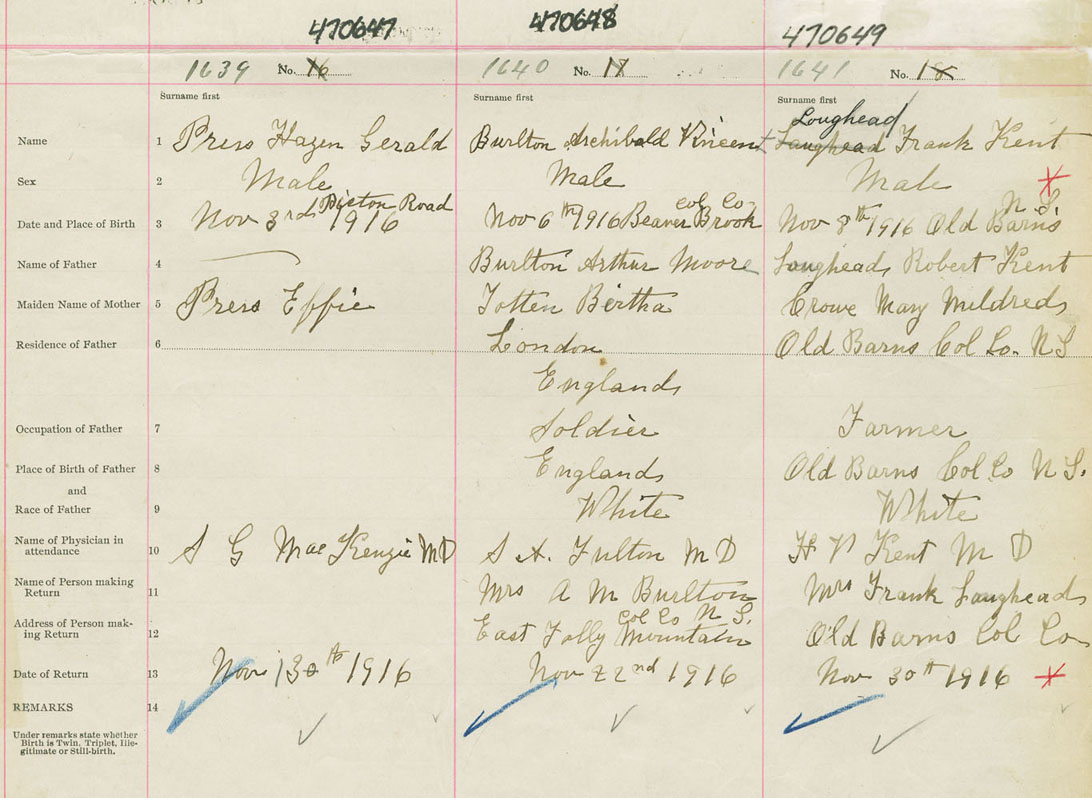 470647 470648 470649
1639 No. 16 1640 No. 17 1641 No. 18
Surname first Surname first Surname first
Loughead
Name 1 Press Hazen Gerald Burlton Archibald Vincent Laughead Frank Kent
Sex 2 Male Male Male
Picton Road Col Co N S.
Date and Place of Birth 3 Nov 3rd 1916 Nov 6th 1916 Beaver Brook Nov 8th 1916 Old Barns
Name of Father 4 Burlton Arthur Moore Laughead Robert Kent
Maiden Name of Mother 5 Press Effie Totten Bertha Crowe Mary Mildred
Residence of Father 6 London Old Barns Col Co. N S
England
Occupation of Father 7 Soldier Farmer
Place of Birth of Father 8 England Old Barns Col Co N S.
and
Race of Father 9 White White
Name of Physician in
attendance 10 S G Mac Kenzie M D S A. Fulton M D H V Kent M D
Name of Person making
Return 11 Mrs A M Burlton Mrs Frank Laughead
Col Co N S.
Address of Person mak-
ing Return 12 East Folly Mountain Old Barns Col Co
Date of Return 13 Nov 13th 1916 Nov 22nd 1916 Nov 30th 1916
REMARKS 14
Under remarks state whether
Birth is Twin, Triplet, Ille-
gitimate or Still-birth.